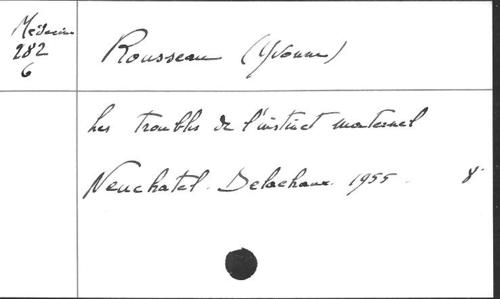 Médecine
282
6
Rousseau (Yvonne)
Les troubles de l'instinct maternel
Neuchatel. Delachaux. 1955. 8°